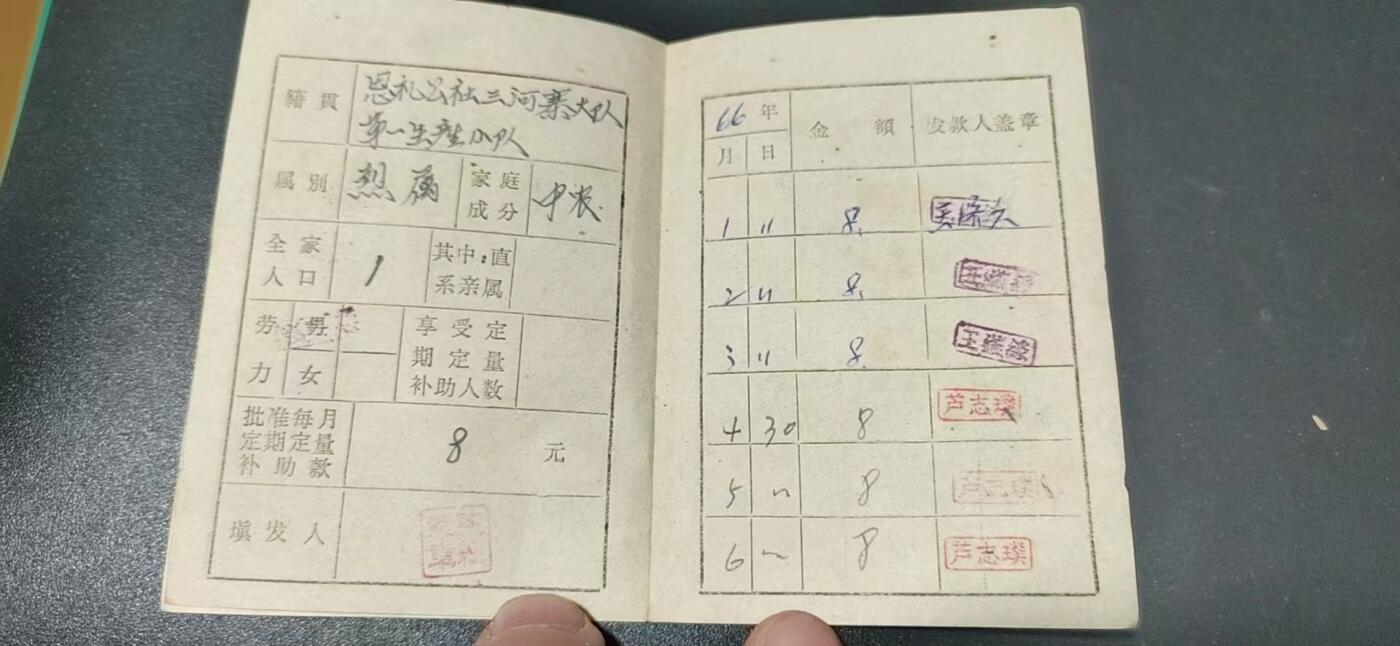 籍貫 恩礼公社三河寨大队
第一生產小队
属別 烈属 家庭成分 中农
全家人口 1 其中：直系亲属
劳力 男 女 享受定期定量补助人数
批准每月定期定量补助款 8 元
填发人
66年 金額 发款人盖章
月 日
1 〃 8.
2 〃 8.
3 〃 8. 王
4 30 8 芦志璞
5 〃 8 芦志璞
6 〃 8 芦志璞